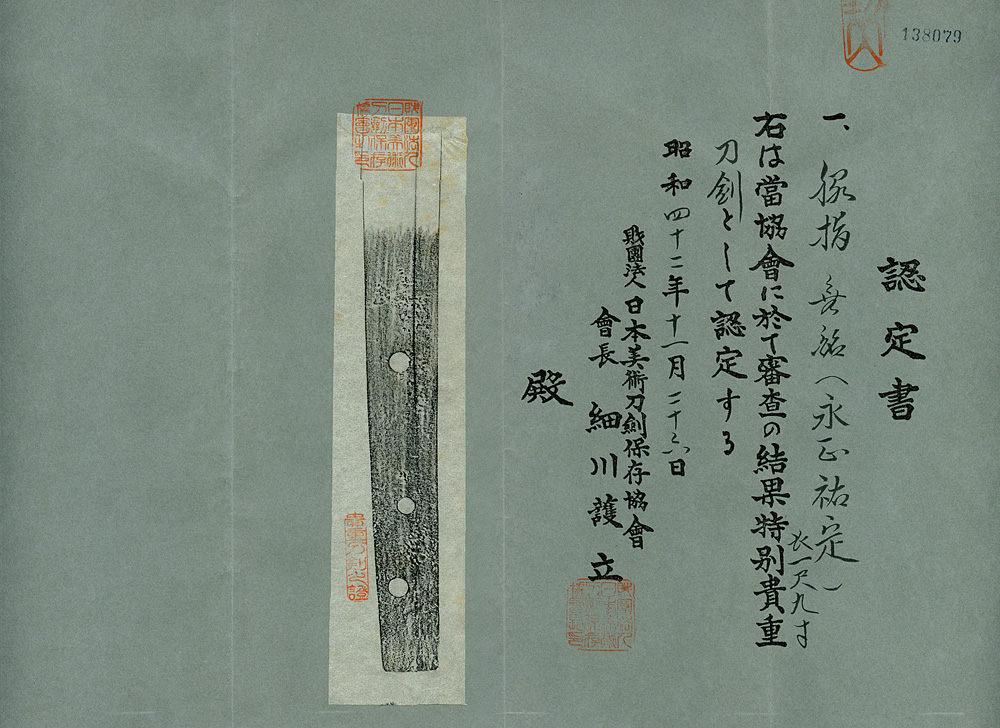 138079
認定書
一、脇指 無銘(永正祐定)
長一尺九寸
右は當協會に於て審査の結果特別貴重
刀劍として認定する
昭和四十二年十一月二十六日
財團法人日本美術刀劍保存協會
會長 細川護立
殿